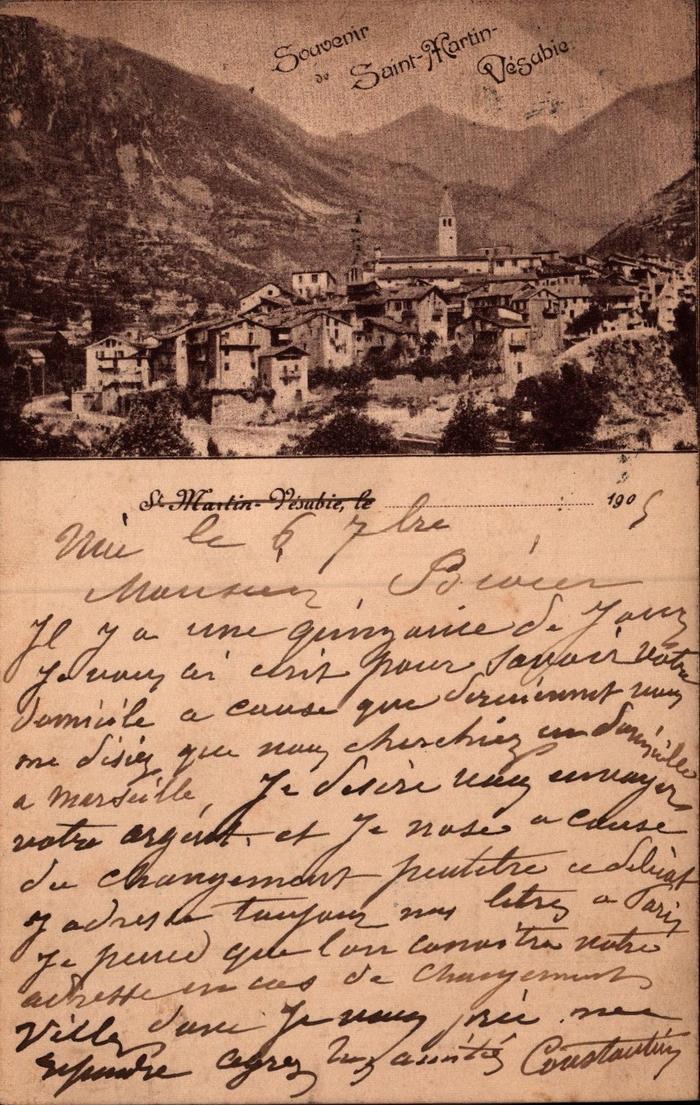 Souvenir
de Saint-Martin-
Vésabie
St Martin-Vésubie, le 1905
le 6 7bre
Monsieur
Il y a une quinzaine de Jours
Je vous ai écrit pour savoir votre
domicile a cause que dernièrement vous
me disiez que vous cherchiez un domicile
a Marseille, Je desire vous envoyer
votre argent. et Je nose a cause
du changement peutêtre
J adresse toujours mes letres a Paris
Je pense que l'on connoitra votre
adresse en cas de changement
Ville, donc Je vous prie me
repondre agrez mes amitiés Constantin